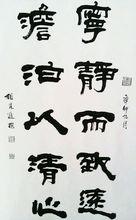 寧靜而致遠
澹泊以清心